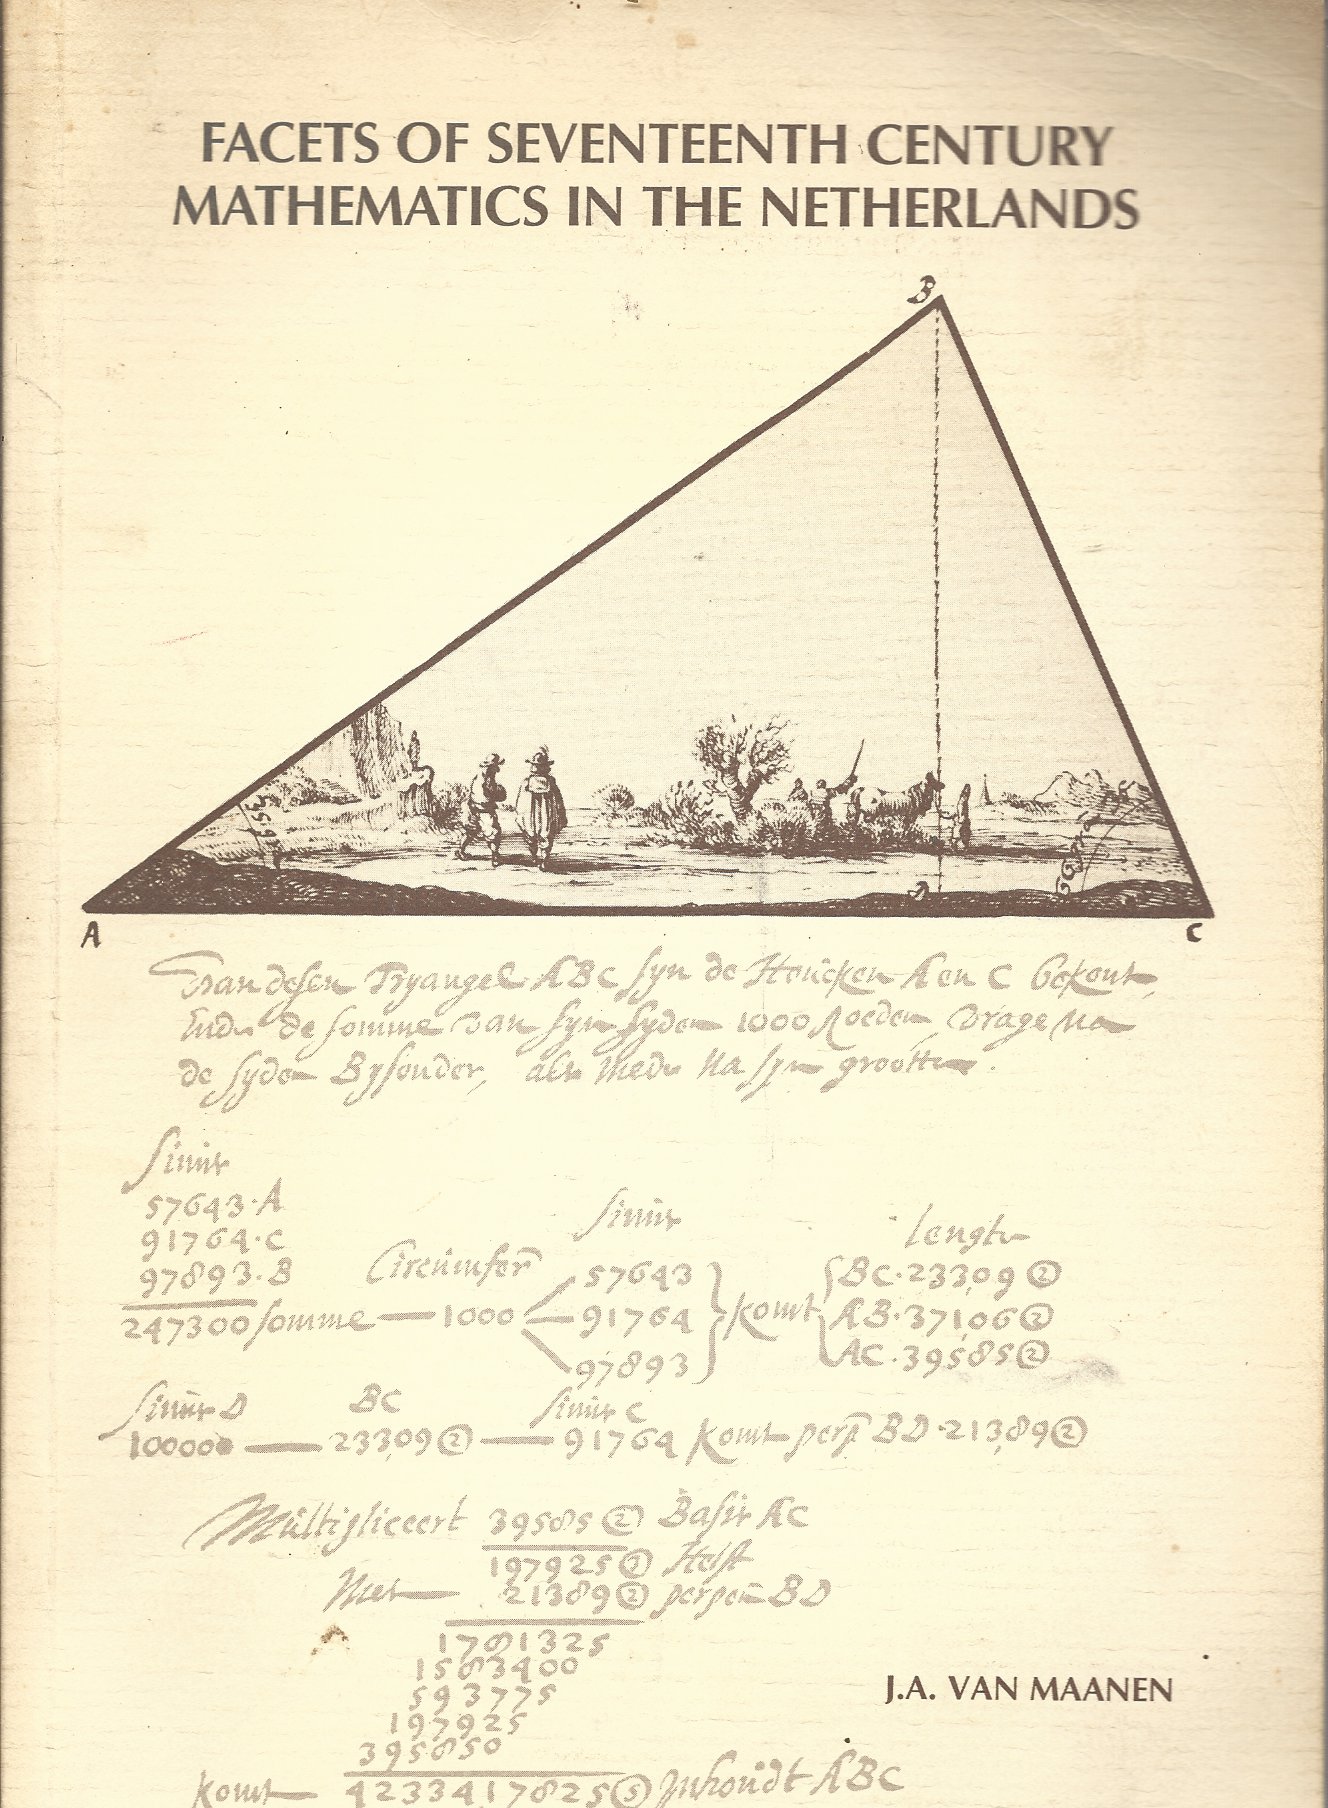 FACETS OF SEVENTEENTH CENTURY
MATHEMATICS IN THE NETHERLANDS
B
A
C
Van desen Tryangel ABC syn de Houcken A en C bekent,
Ende de somme van syn syden 1000 Roeden, vrage na
de syden Bysonder, als mede na syn grootte.
Sinus
57643·A
91764·C
97893·B
247300 somme — 1000
Circumfer
Sinus
57643
91764
97893
komt
Lengte
BC·23309 ②
AB·37106 ②
AC·39585 ②
Sinus D BC Sinus C
100000 — 23309 ② — 91764 komt perp BD·21389 ②
Multipliceert 39585 ② Basis AC
197925 ③ Helft
Met 21389 ② perpen BD
1781325
1583400
593775
197925
395850
komt 4233417825 ⑤ Inhoudt ABC
J.A. VAN MAANEN